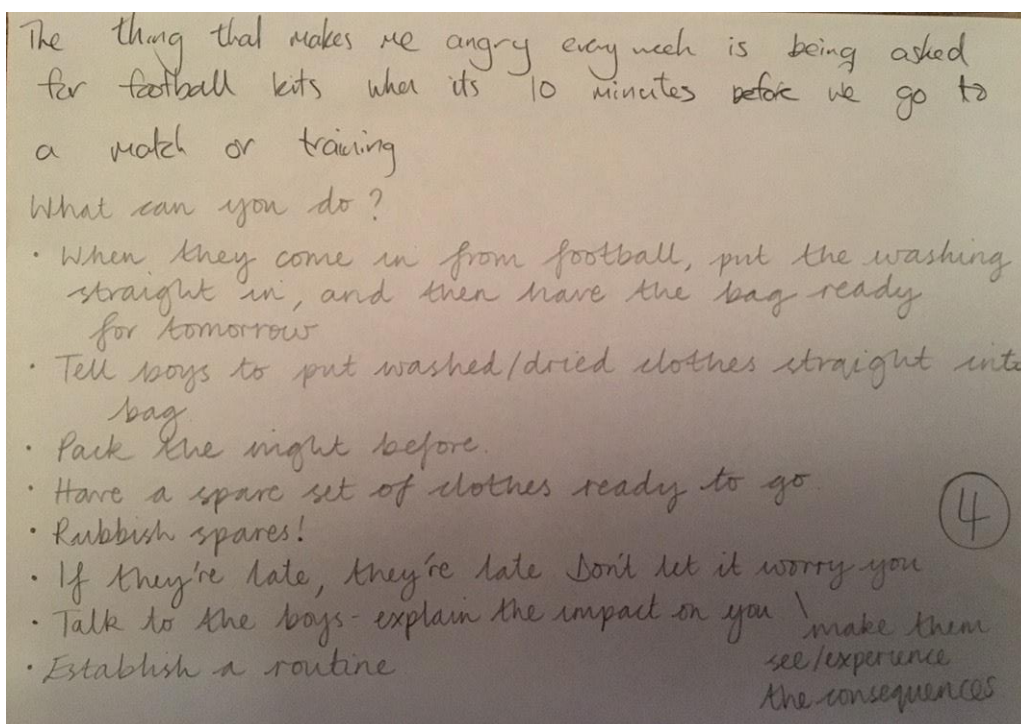 The thing that makes me angry every week is being asked
for football kits when its 10 minutes before we go to
a match or training
What can you do?
· When they come in from football, put the washing
straight in, and then have the bag ready
for tomorrow
· Tell boys to put washed/dried clothes straight into
bag
· Pack the night before.
· Have a spare set of clothes ready to go
4
· Rubbish spares!
· If they're late, they're late Don't let it worry you
· Talk to the boys - explain the impact on you \ make them
see/experience
the consequences
· Establish a routine